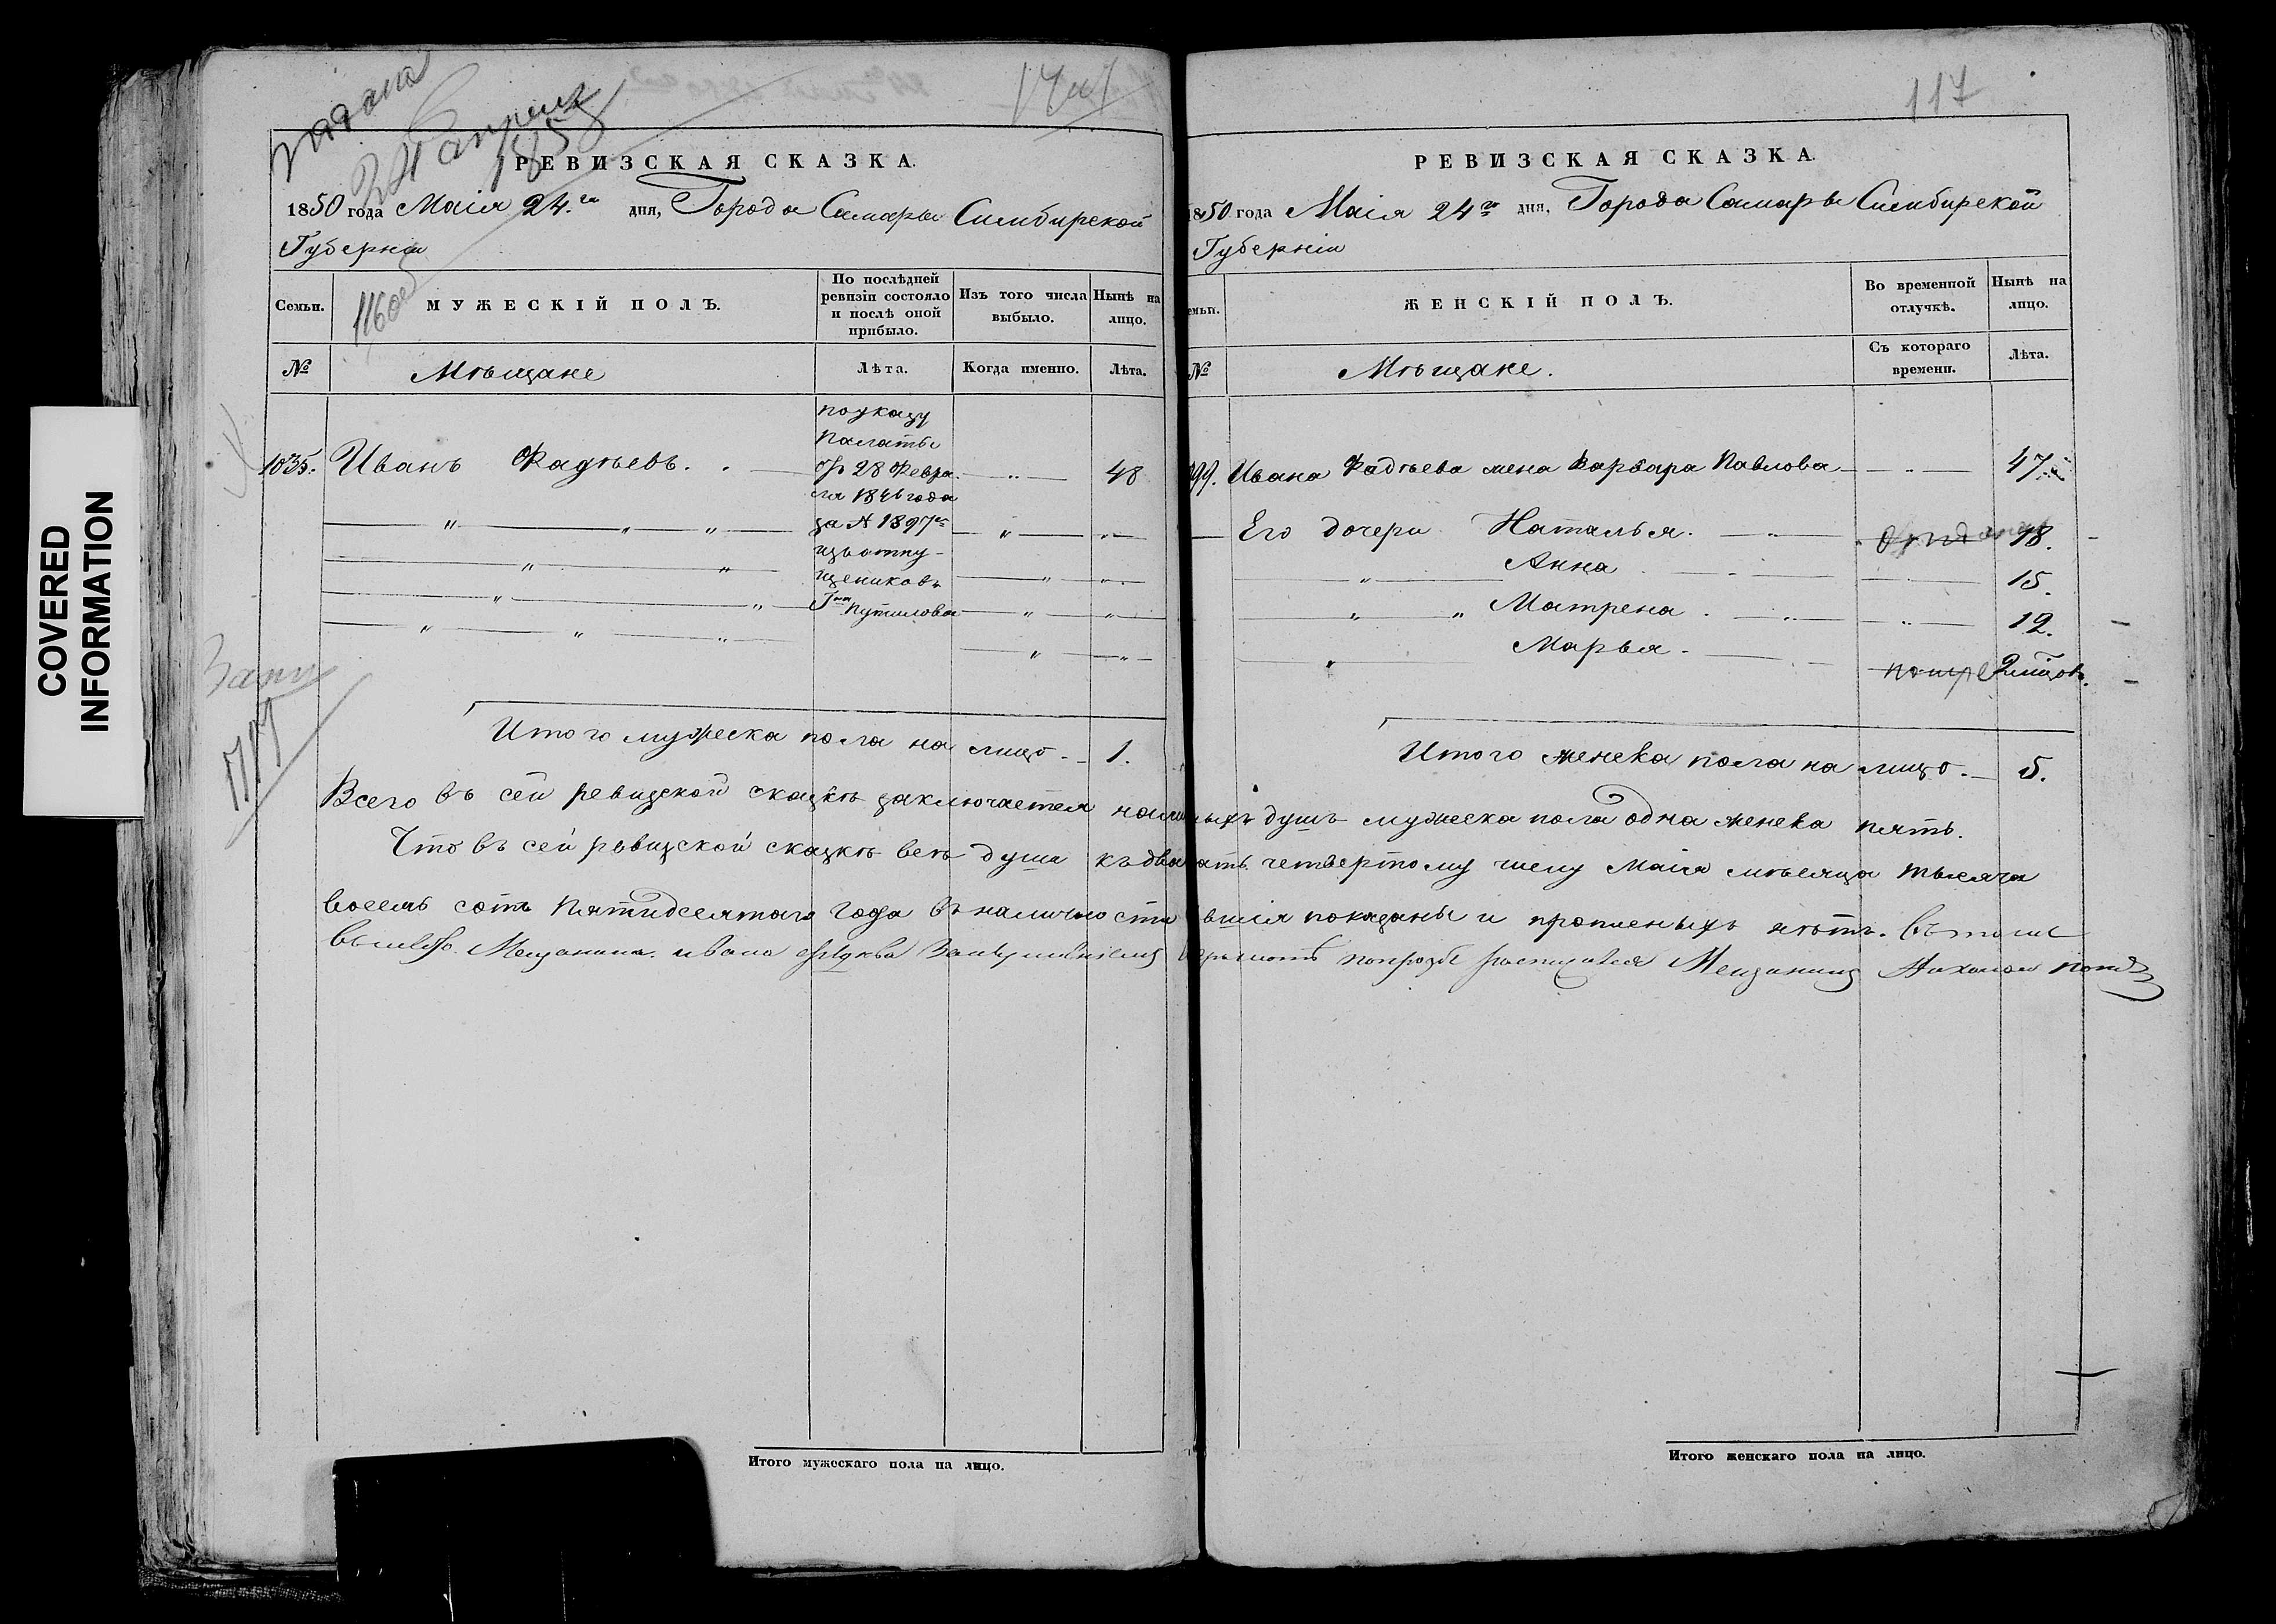 117
COVERED INFORMATION
РЕВИЗСКАЯ СКАЗКА.
1850 года Маія 24.го дня, Города Самары Симбирской
Губерніи
Семьи.
МУЖЕСКІЙ ПОЛЪ.
По послѣдней ревизіи состояло и послѣ оной прибыло.
Изъ того числа выбыло.
Нынѣ на лицо.
№
Мѣщане
Лѣта.
Когда именно.
Лѣта.
1035. Иванъ Фадѣевъ. 48
по указу
Палаты
28 Февра
ля 1846 года
за № 1897
изъ отпу-
щениковъ
Г-на Путилова
Итого мужеска пола на лицо. 1.
РЕВИЗСКАЯ СКАЗКА.
1850 года Маія 24го дня, Города Самары Симбирской
Губерніи
ЖЕНСКІЙ ПОЛЪ.
Во временной отлучкѣ.
Нынѣ на лицо.
№
Мѣщане.
Съ котораго времени.
Лѣта.
Ивана Фадѣева жена Варвара Павлова 47.
Его дочери Наталья. 18.
Анна 15.
Матрена 12.
Марья
Итого женска пола на лицо. 5.
Всего въ сей ревизской сказкѣ заключается наличныхъ душъ мужеска пола одна женска пять.
Что въ сей ревизской сказкѣ всѣ души къ двадцать четвертому числу Маія мѣсяца тысяча
восемь сотъ Пятидесятаго года въ наличности бывшія показаны и прописныхъ нѣтъ. Въ томъ
Мещанинъ
Итого мужескаго пола на лицо.
Итого женскаго пола на лицо.